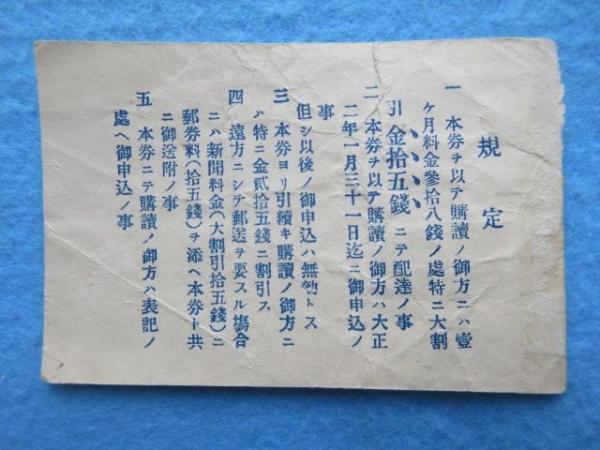 規定
一 本券ヲ以テ購讀ノ御方ニハ壹
ケ月料金參拾八錢ノ處特ニ大割
引金拾五錢ニテ配達ノ事
二 本券ヲ以テ購讀ノ御方ハ大正
二年一月三十一日迄ニ御申込ノ
事
但シ以後ノ御申込ハ無効トス
三 本券ヨリ引續キ購讀ノ御方ニ
ハ特ニ金貳拾五錢ニ割引ス
四 遠方ニシテ郵送ヲ要スル塲合
ニハ新聞料金(大割引拾五錢)ニ
郵券料(拾五錢)ヲ添ヘ本券ト共
ニ御送附ノ事
五 本券ニテ購讀ノ御方ハ表記ノ
處ヘ御申込ノ事